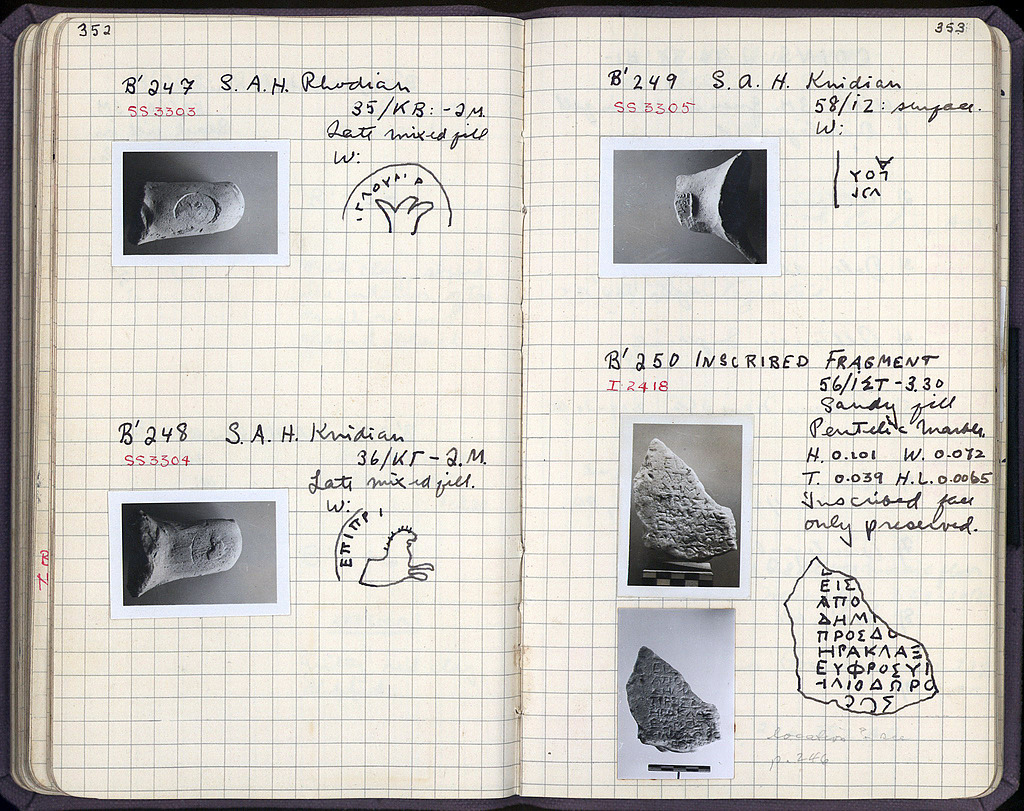 352
B' 247 S. A. H. Rhodian
SS 3303
35/ΚΒ: -2 M.
Late mixed fill
W:
ΠΛΟΥ
B' 248 S. A. H. Knidian
SS 3304
36/ΚΓ - 2. M.
Late mixed fill.
W:
ΕΠΙΠΡΙ
B' 7
353
B' 249 S. A. H. Knidian
SS 3305
58/ΙΖ: surface.
W:
B' 250 INSCRIBED FRAGMENT
I 2418
56/ΙΣΤ - 3.30
Sandy fill
Pentelic Marble.
H. 0.101 W. 0.072
T. 0.039 H.L. 0.0065
Inscribed face
only preserved.
ΕΙΣ
ΑΠΟ
ΔΗΜΙ
ΠΡΟΣΔ
ΗΡΑΚΛΑΞ
ΕΥΦΡΟΣΥΙ
ΗΛΙΟΔΩΡΟ
ΟΣ
location: see
p. 246